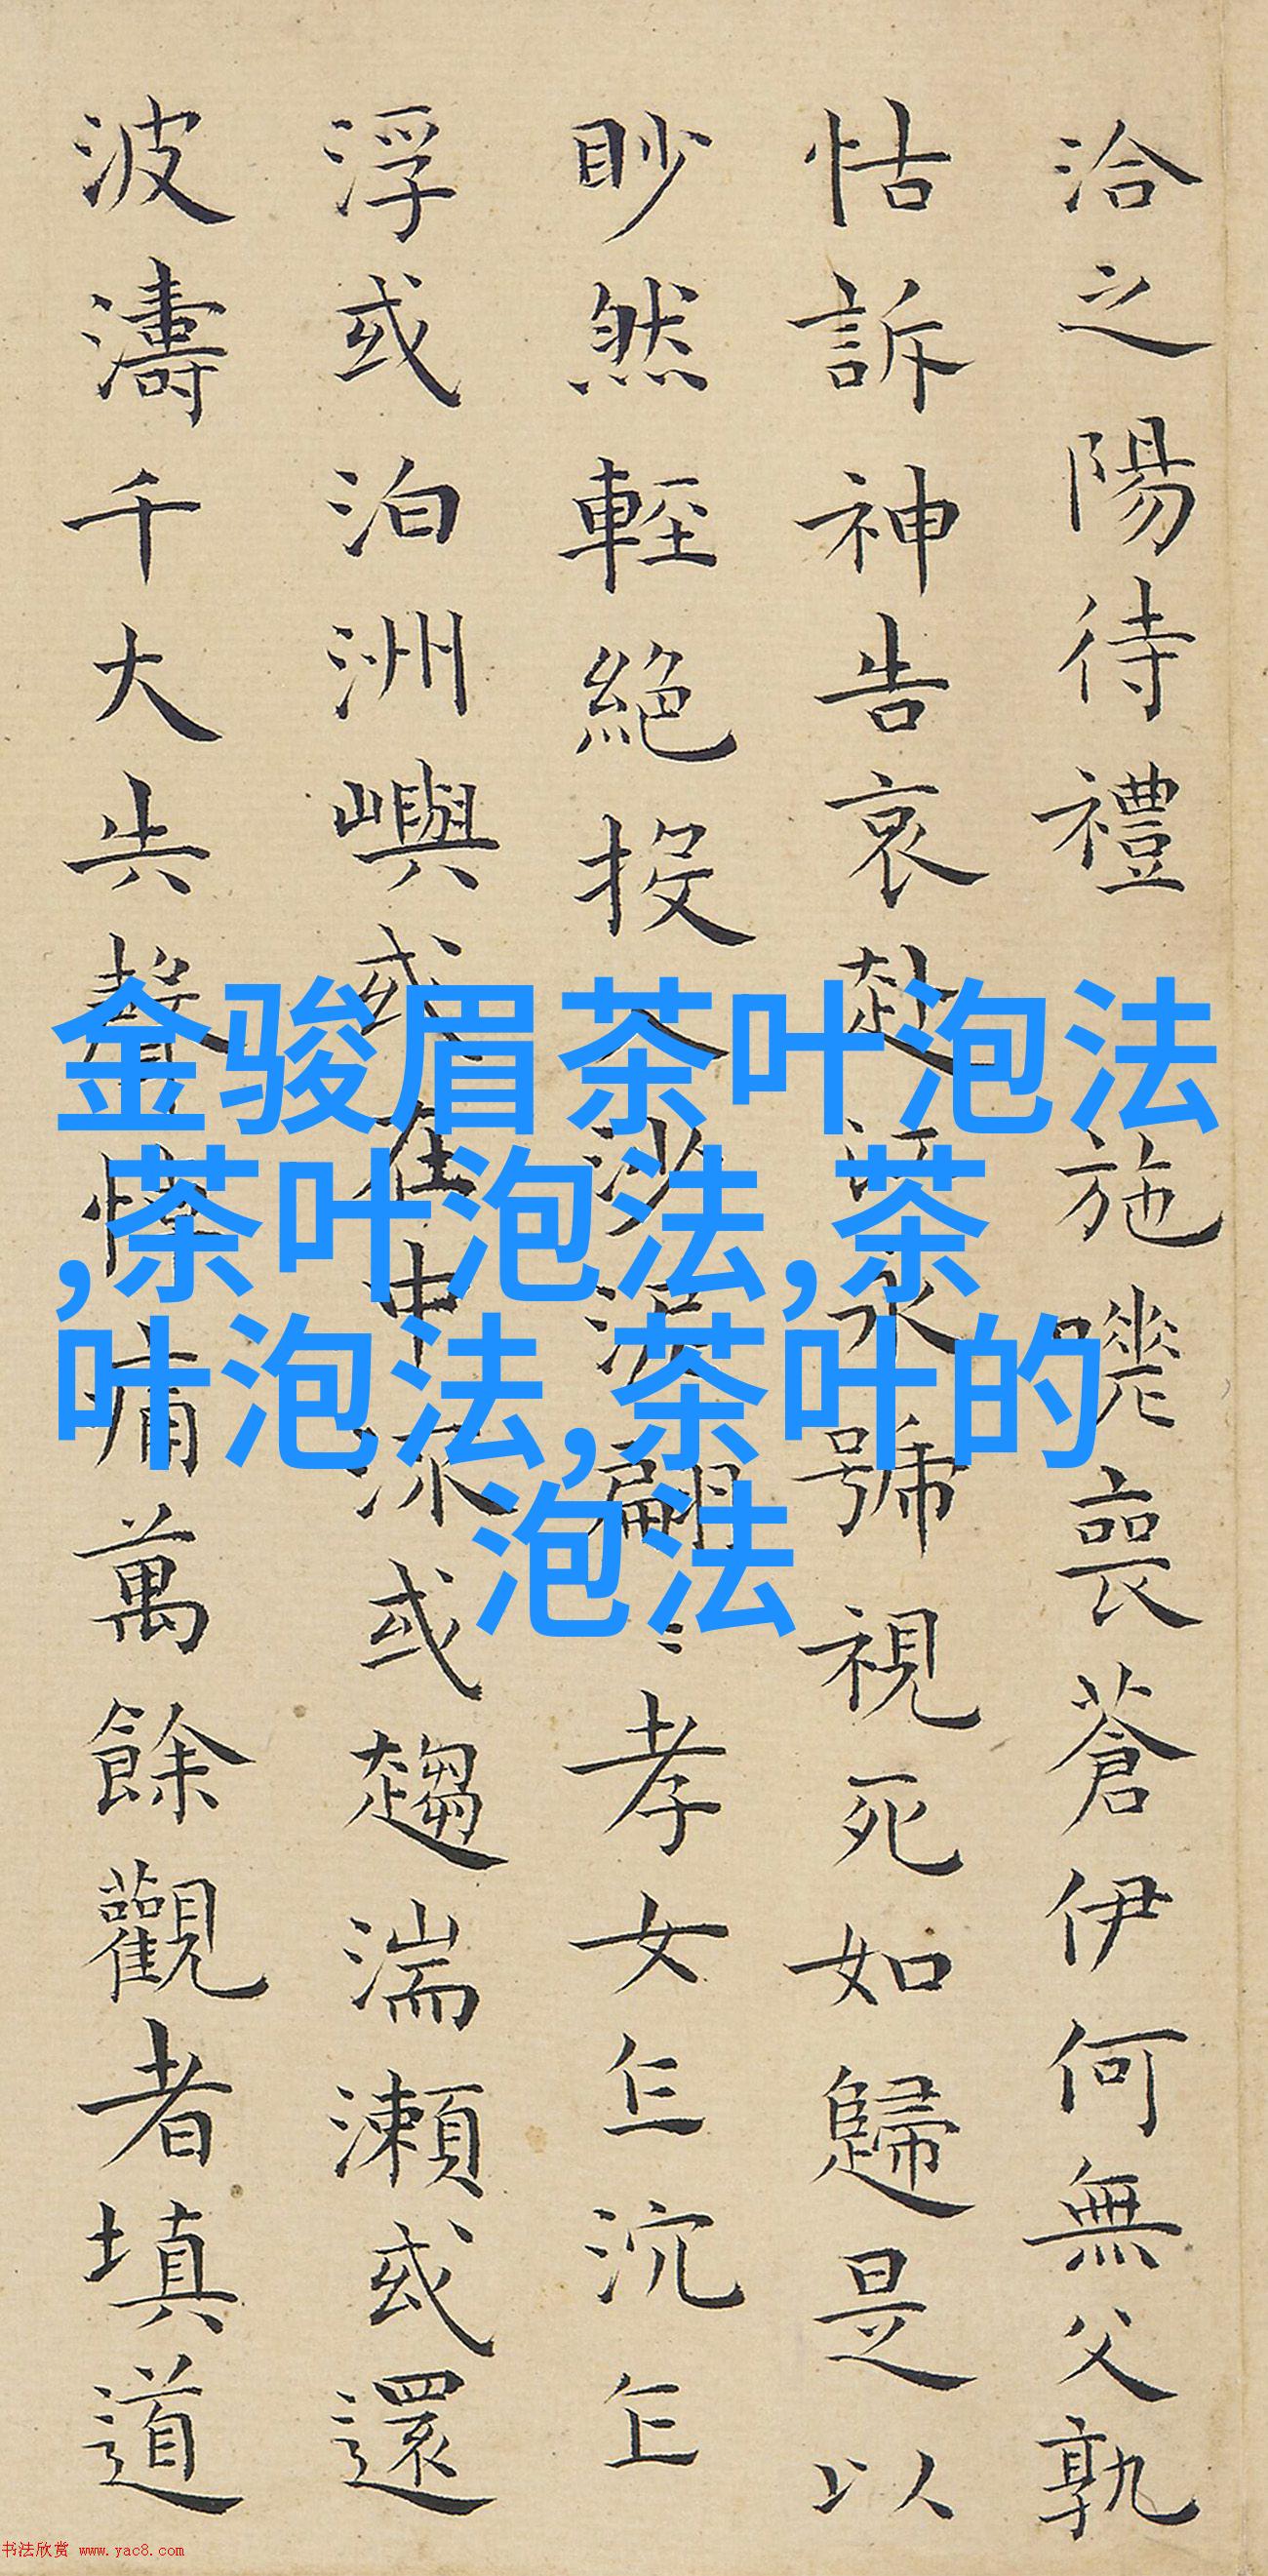 洽之陽待禮施嗟喪蒼伊何無父孰
怙訴神告哀赴江永號視死如歸是以
眇然輕絕投入沙泥翩〻孝女乍沉乍
浮或泊洲嶼或在中流或趨湍瀨或還
波濤千大失聲悼痛萬餘觀者填道
金骏眉茶叶泡法
,茶叶泡法,茶
叶泡法,茶叶的
泡法
书法欣赏 www.yac8.com